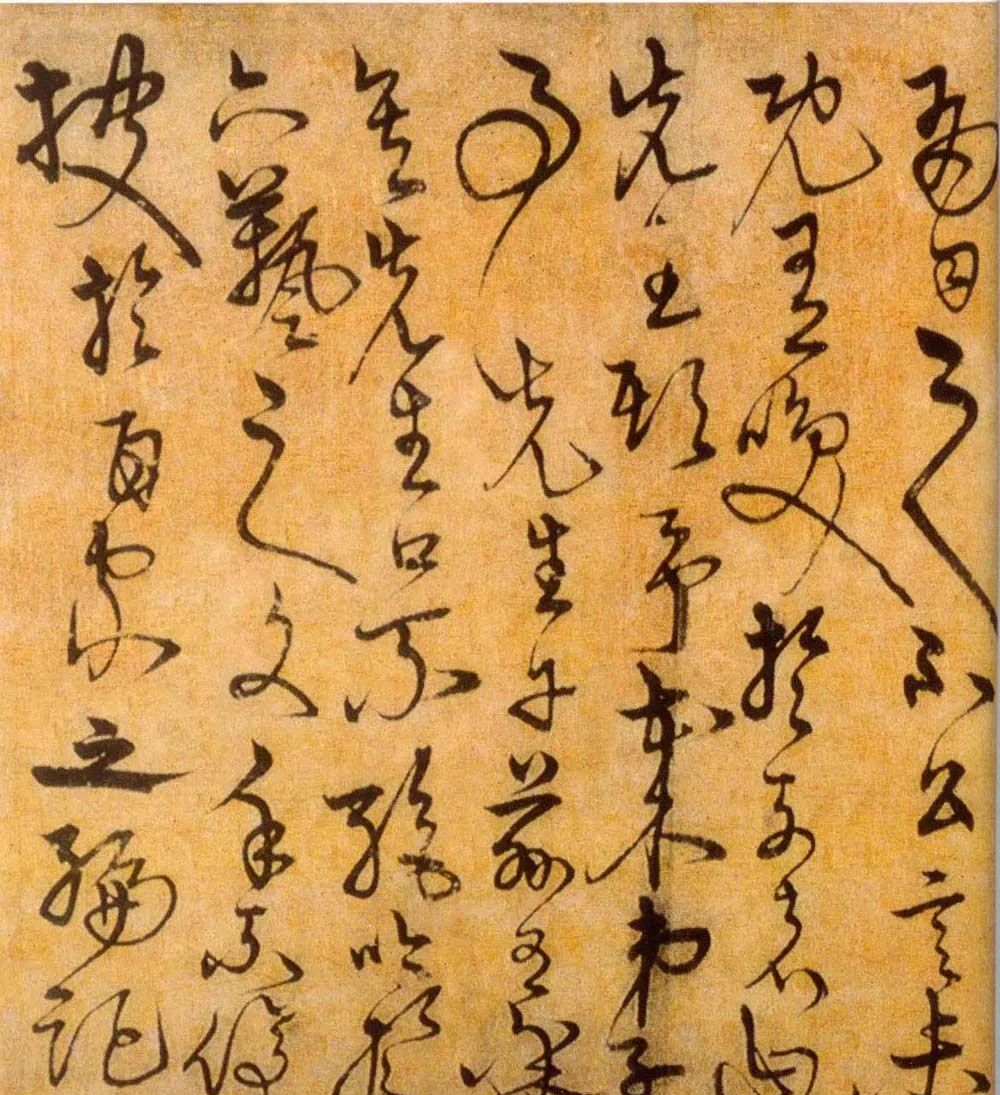 有司之不公言未
既有笑於列者曰
先生欺予哉弟子
事先生于茲有年
矣先生口不絕吟於
六藝之文手不停
披於百家之編記